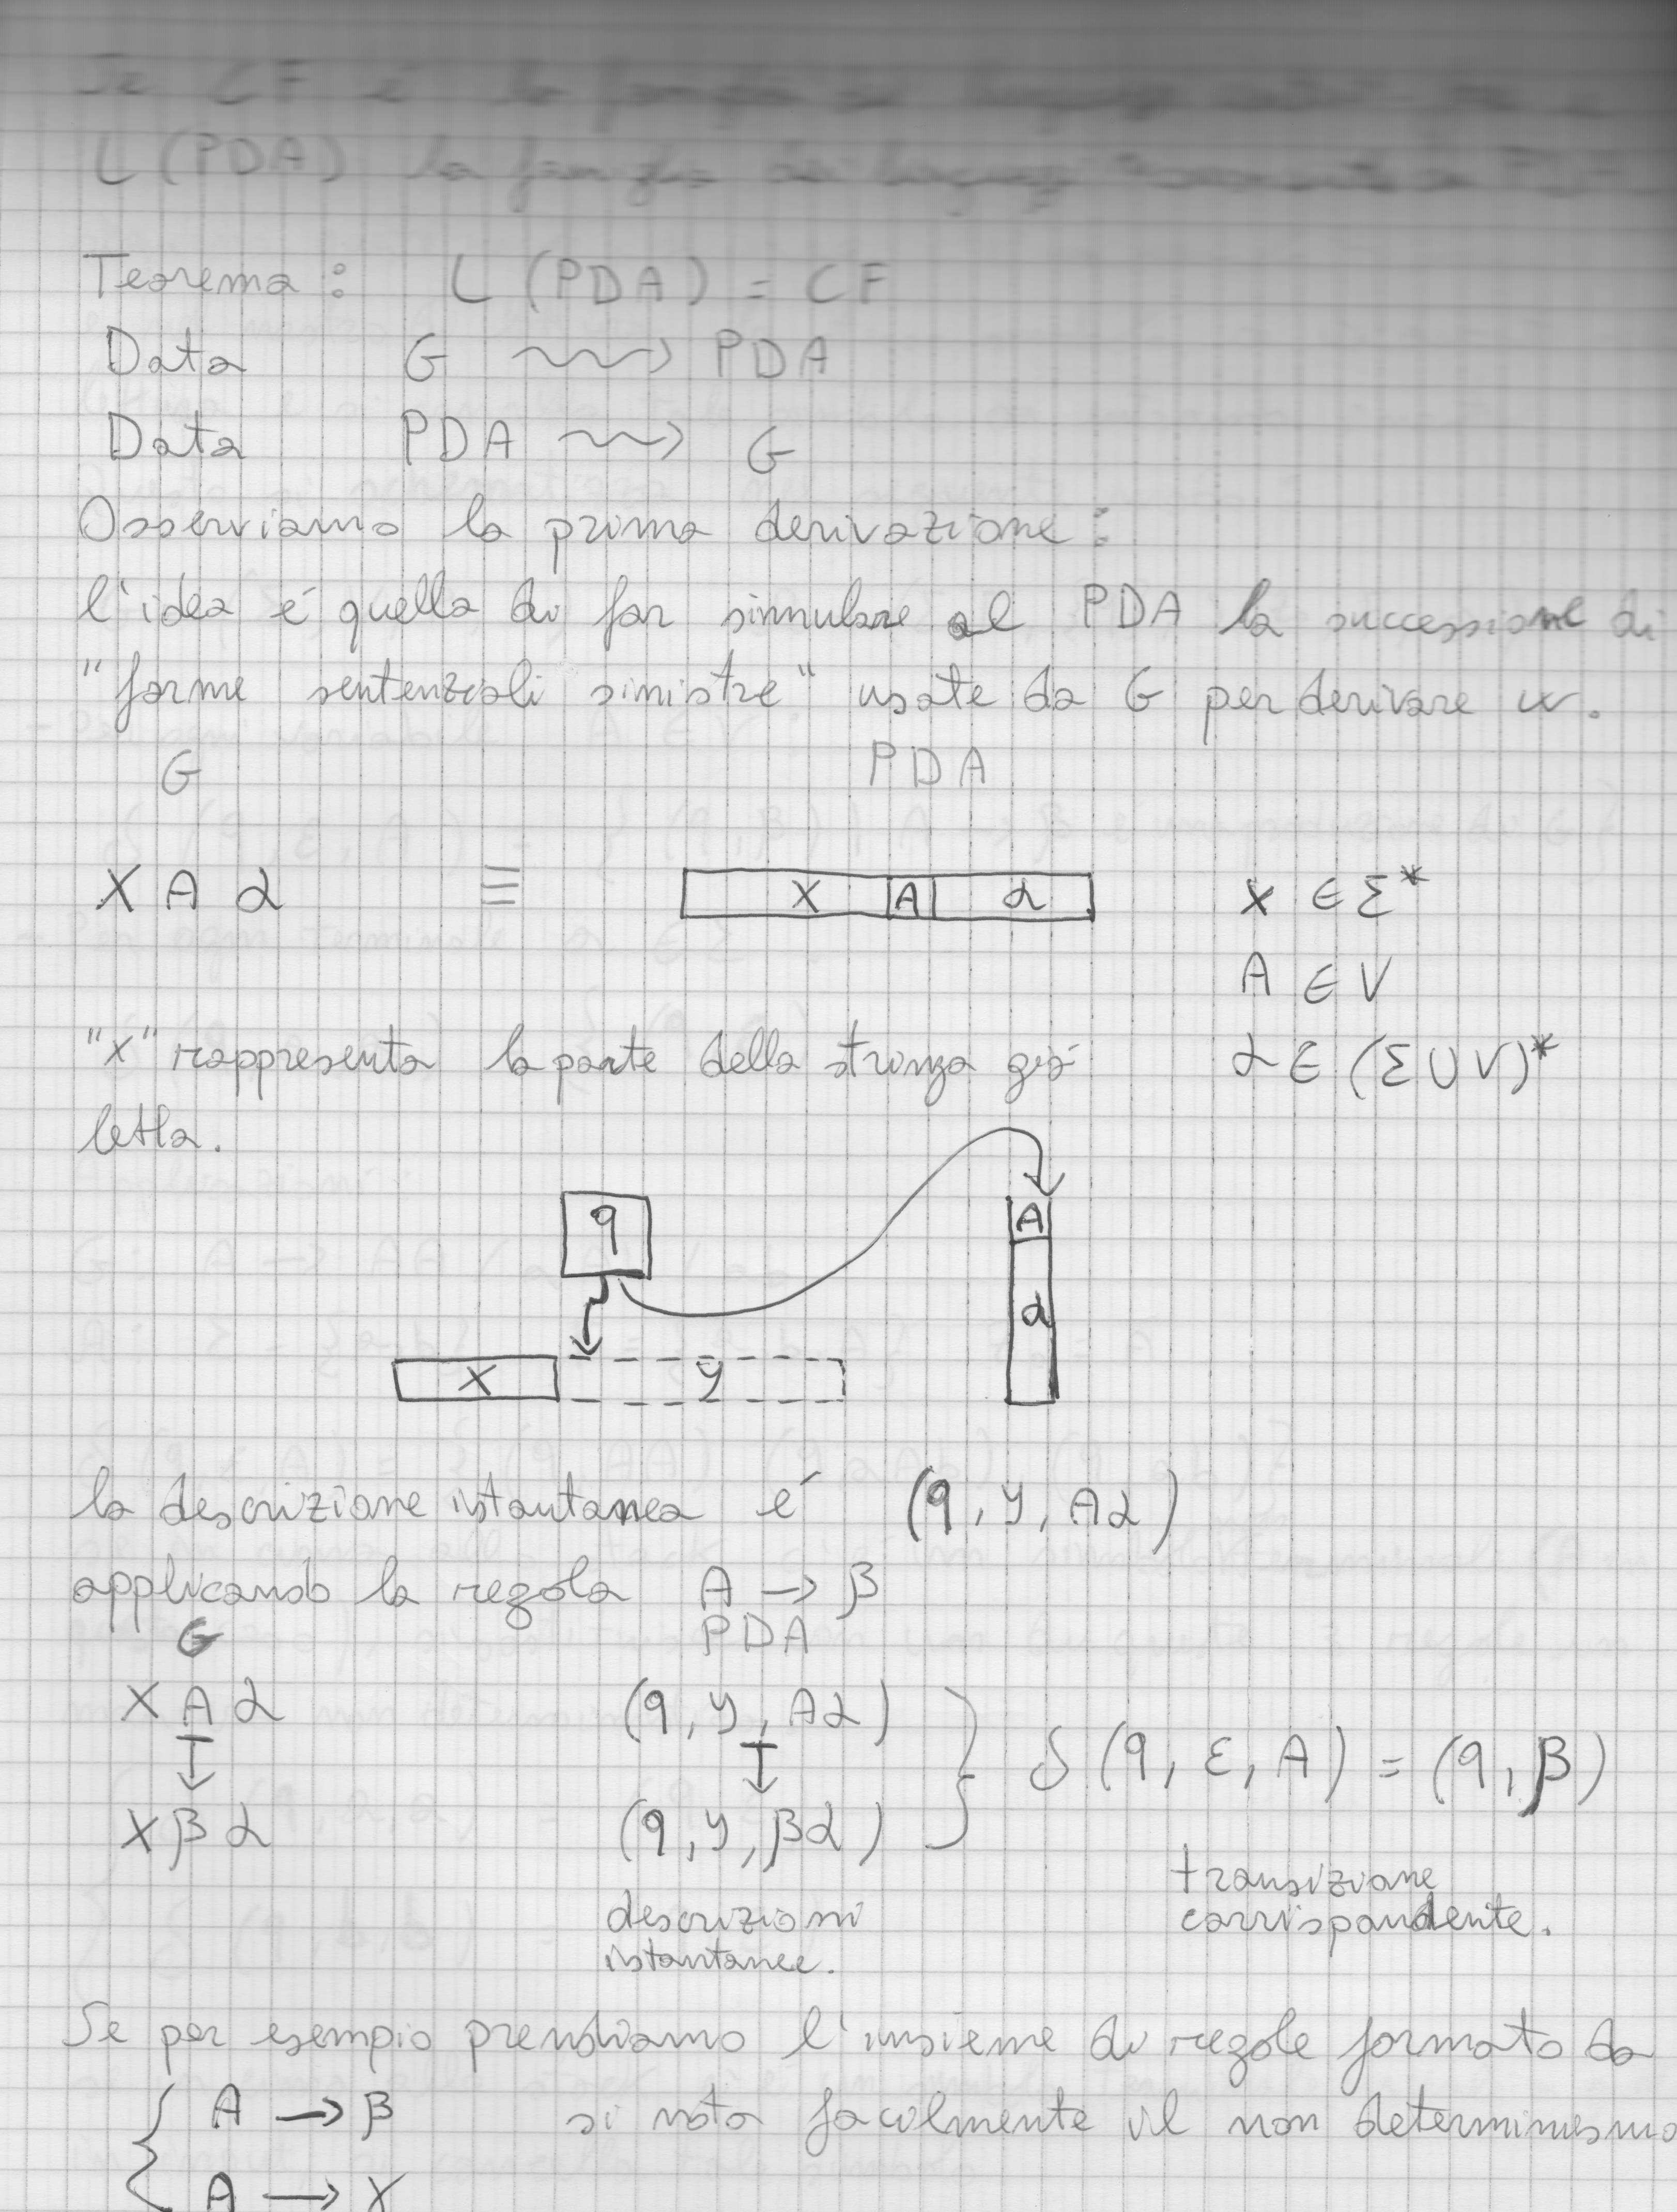 Se CF è la famiglia
L(PDA) la famiglia dei linguaggi
Teorema: L(PDA) = CF
Data G ⇝ PDA
Data PDA ⇝ G
Osserviamo la prima derivazione:
l'idea é quella di far simulare al PDA la successione di
"forme sentenziali sinistre" usate da G per derivare w.
G PDA
X A α ≡ X A α X ∈ Σ*
A ∈ V
"X" rappresenta la parte della stringa già α ∈ (Σ ∪ V)*
letta.
q A
α
X y
la descrizione istantanea é (q, y, Aα)
applicando la regola A → β
G PDA
X A α (q, y, Aα)
↧ ↧ } δ(q, ε, A) = (q, β)
X β α (q, y, βα)
transizione
descrizioni corrispondente.
istantanee.
Se per esempio prendiamo l'insieme di regole formato da
{ A → β si nota facilmente il non determinismo
A → X